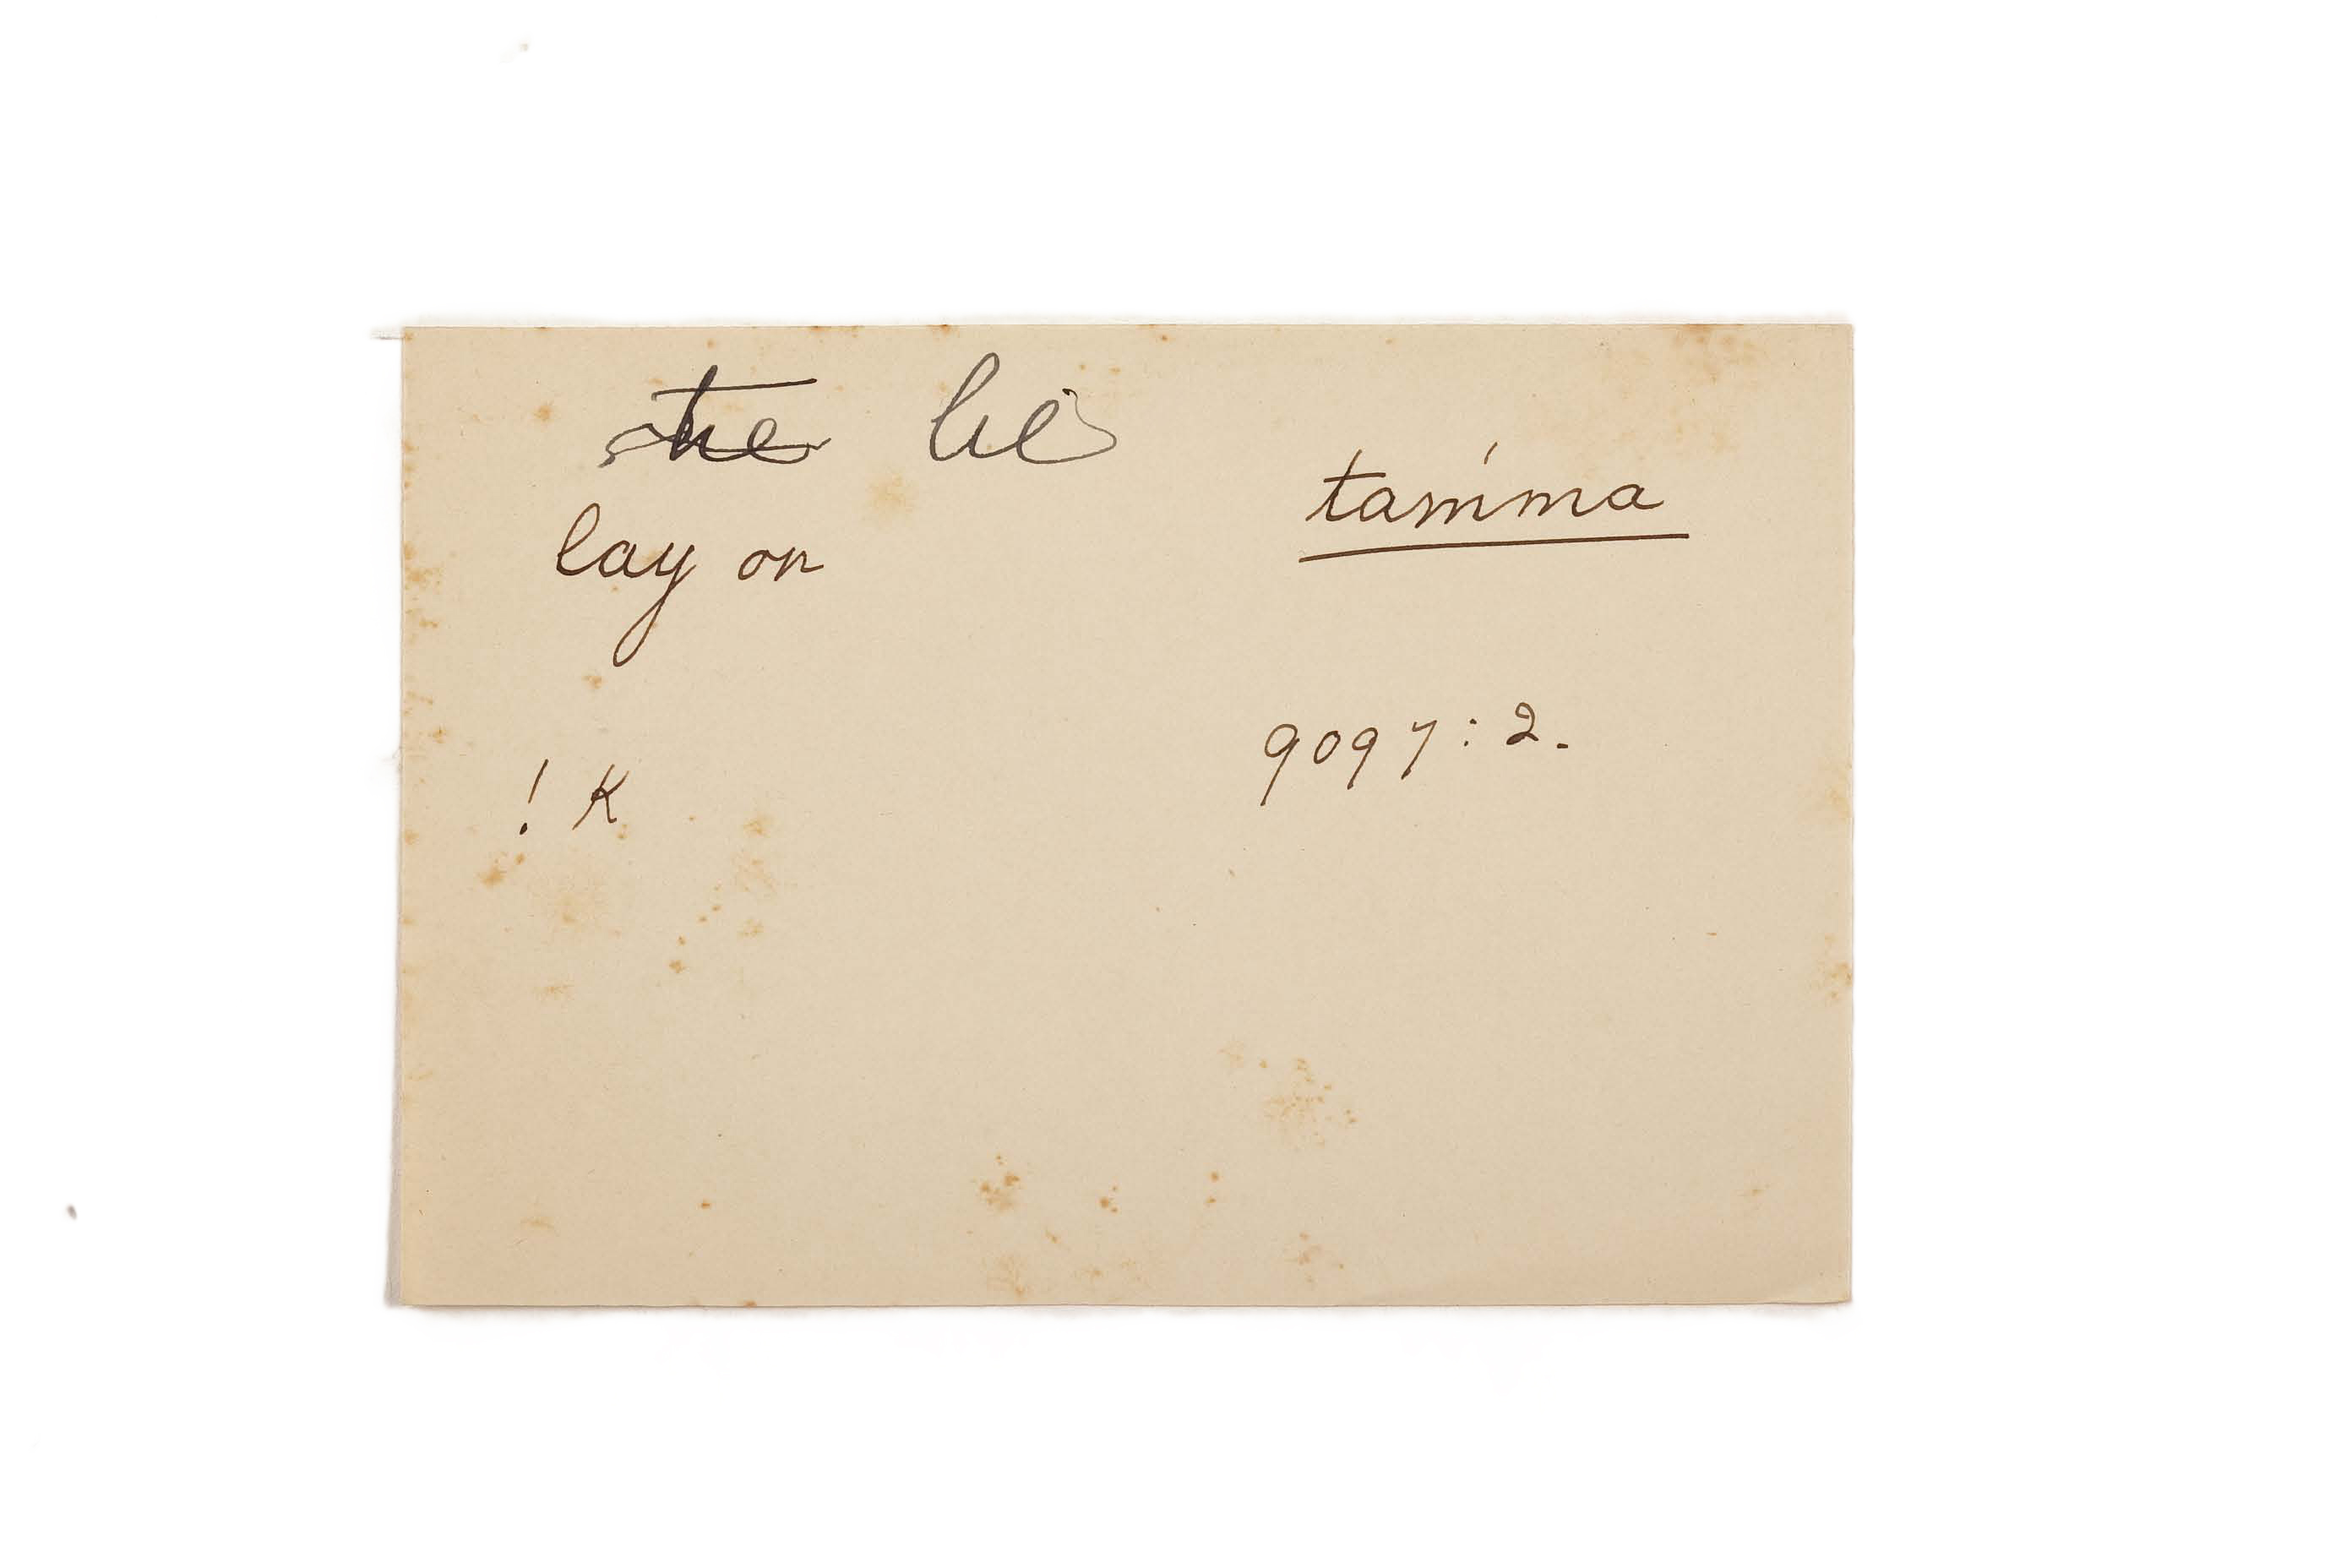 he
lay on
tam'ma
9097: 2.
! K